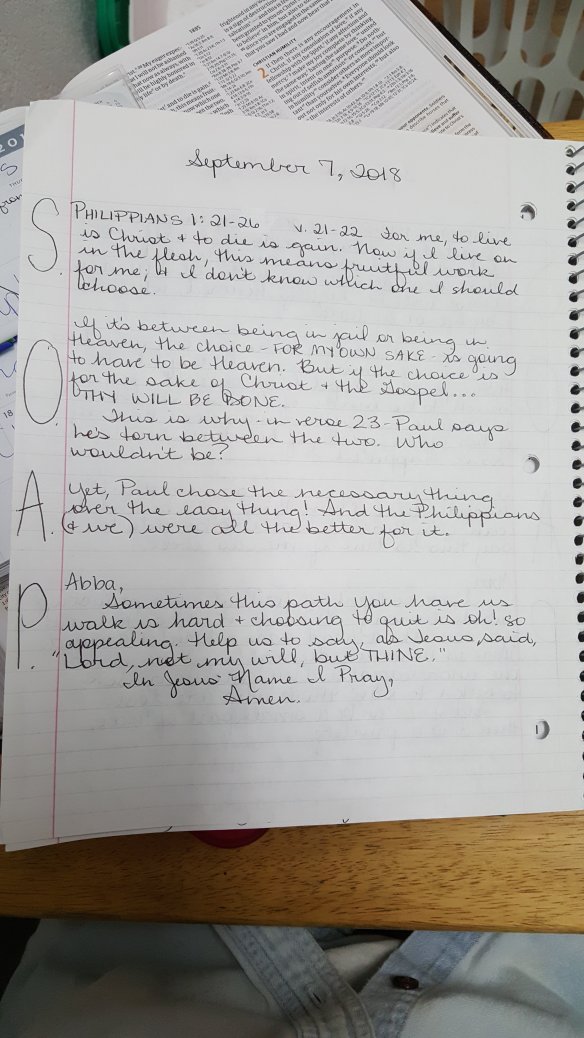 September 7, 2018
S. PHILIPPIANS 1:21-26 v. 21-22 For me, to live
is Christ + to die is gain. Now if I live on
in the flesh, this means fruitful work
for me; + I don't know which one I should
choose.
O. If it's between being in jail or being in
Heaven, the choice - FOR MY OWN SAKE - is going
to have to be Heaven. But if the choice is
for the sake of Christ + the Gospel...
THY WILL BE DONE.
This is why - in verse 23 - Paul says
he's torn between the two. Who
wouldn't be?
A. Yet, Paul chose the necessary thing
over the easy thing! And the Philippians
(+ we) were all the better for it.
P. Abba,
Sometimes this path You have us
walk is hard + choosing to quit is oh! so
appealing. Help us to say, as Jesus said,
"Lord, not my will, but THINE."
In Jesus' Name I Pray,
Amen.
1895
CHRISTIAN HUMILITY